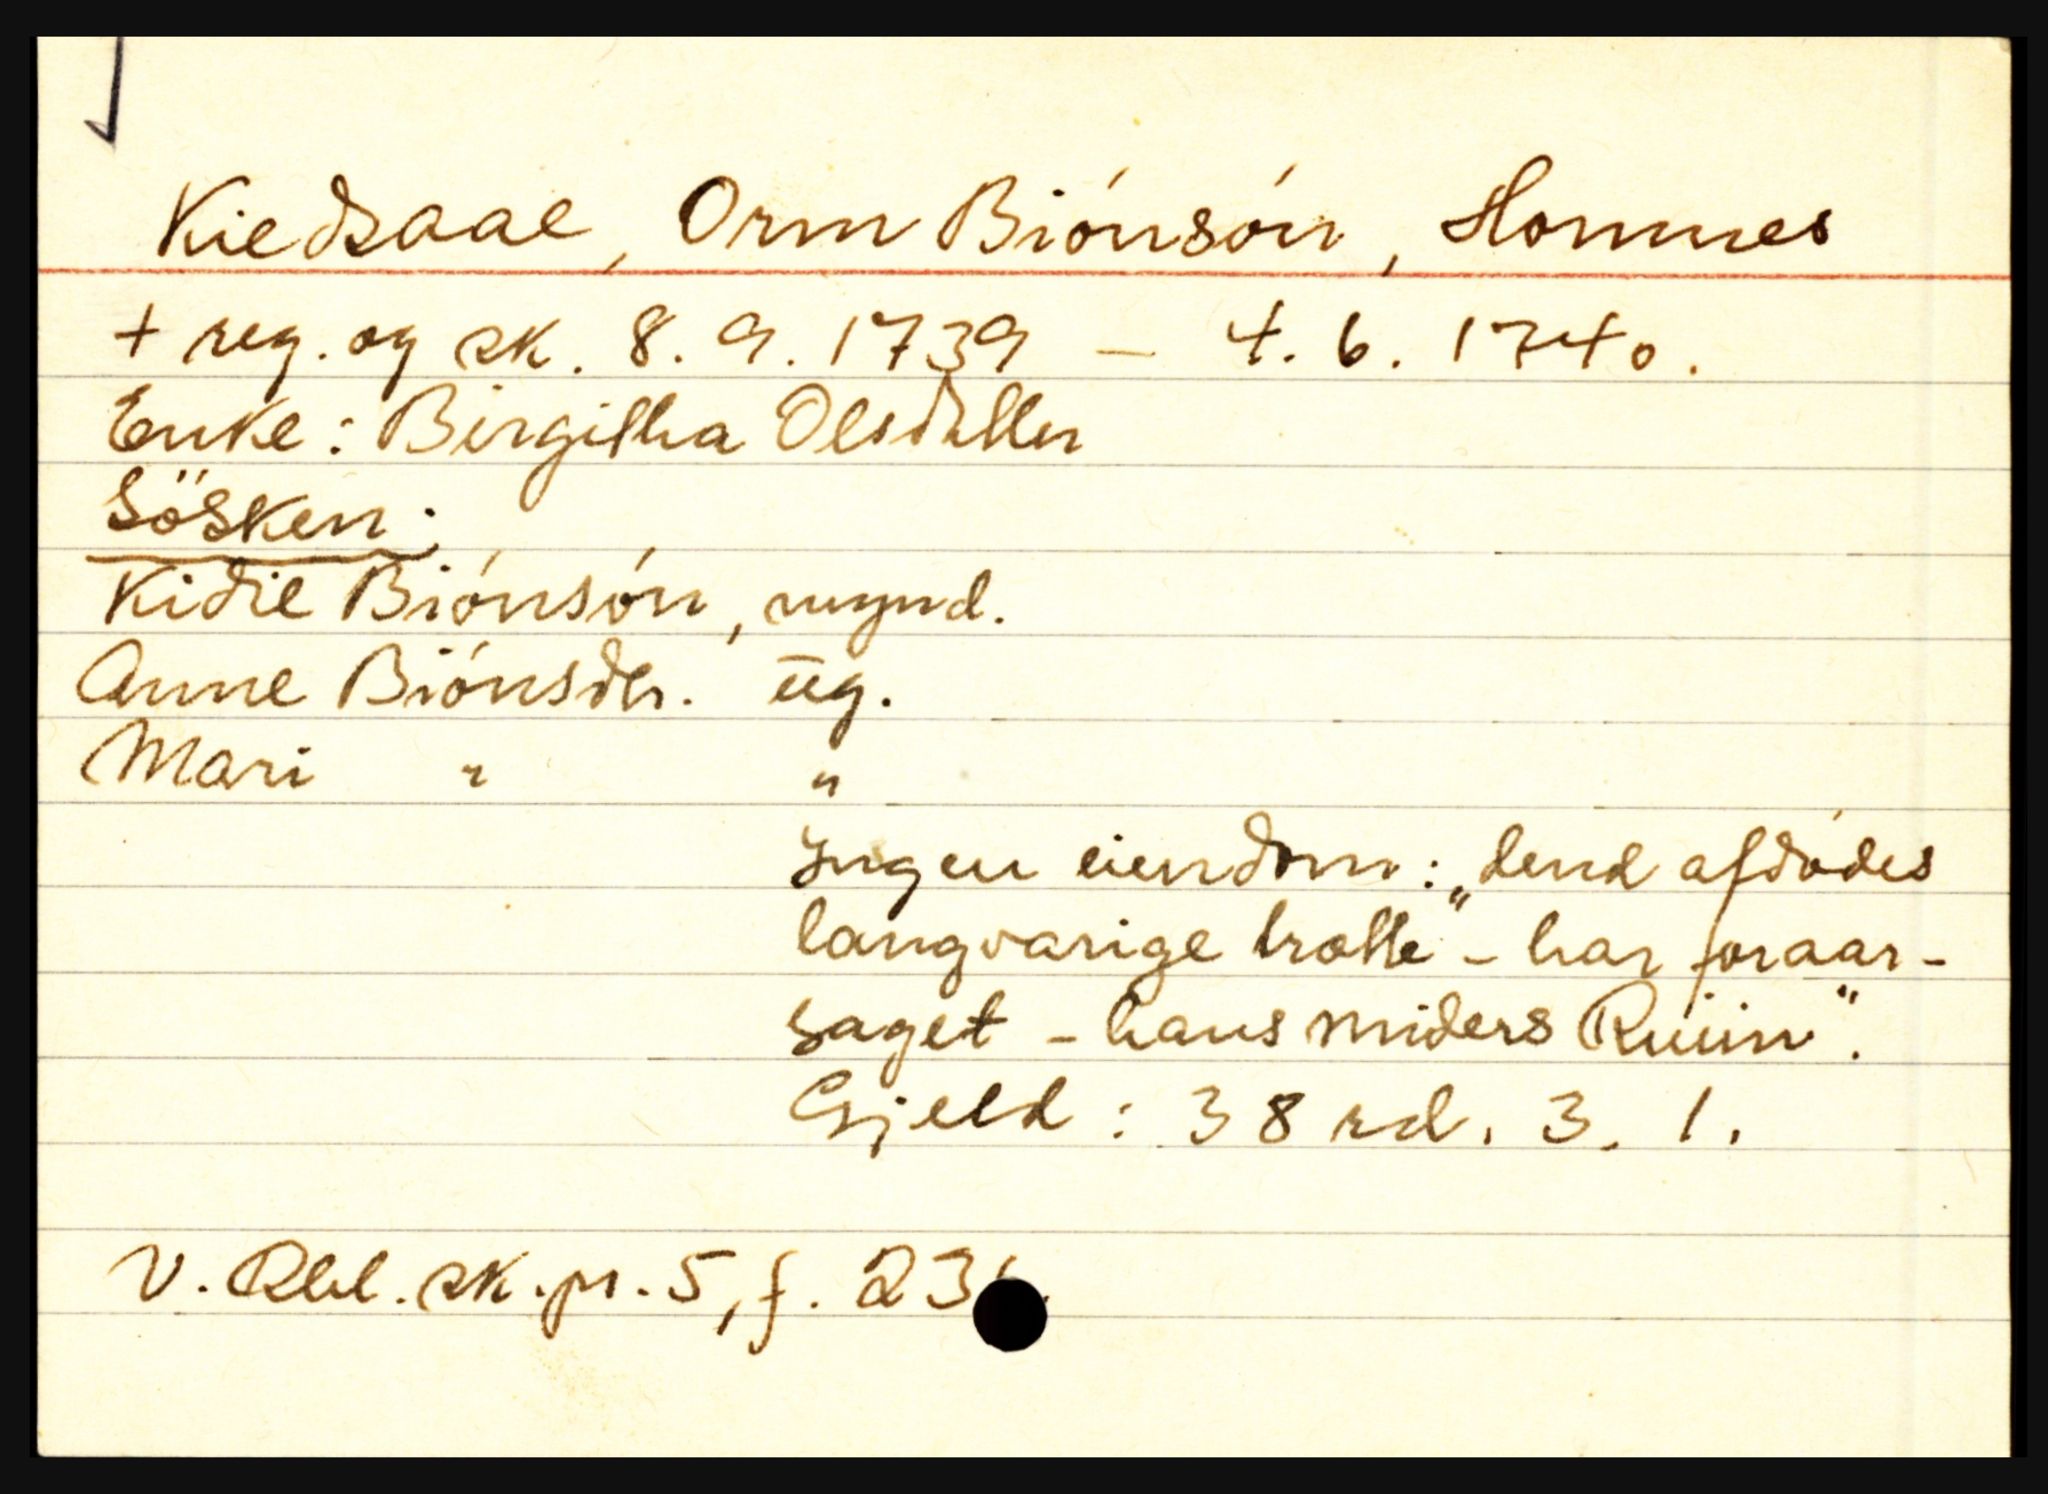 Kiedsaae, Orm Biónsón, Hommes
+ reg. og sk. 8. 9. 1739 – 4. 6. 1740.
Enke: Birgitha Olsdatter
Sösken:
Kidil Biónsón, mynd.
Anne Biónsdtr. ūg.
Mari " "
Ingen eiendom: „dend afdódes
langvarige trætte" – har foraar-
saget – hans miders Ruin".
Gjeld: 38 rd. 3. 1.
V. Rbl. sk. pr. 5, f.